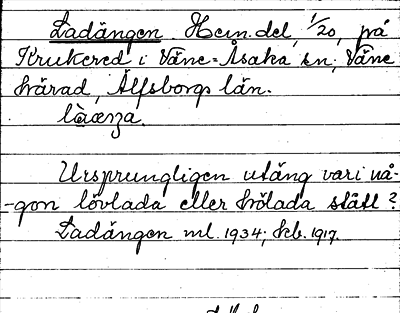 Ladängen. Hem.del, 1/20, på
Krukered i Väne-Åsaka sn; Väne
härad, Älfsborgs län.
Ursprungligen utäng vari nå-
-gon lövlada eller hölada stått?
Ladängen ml. 1934; kb. 1917.